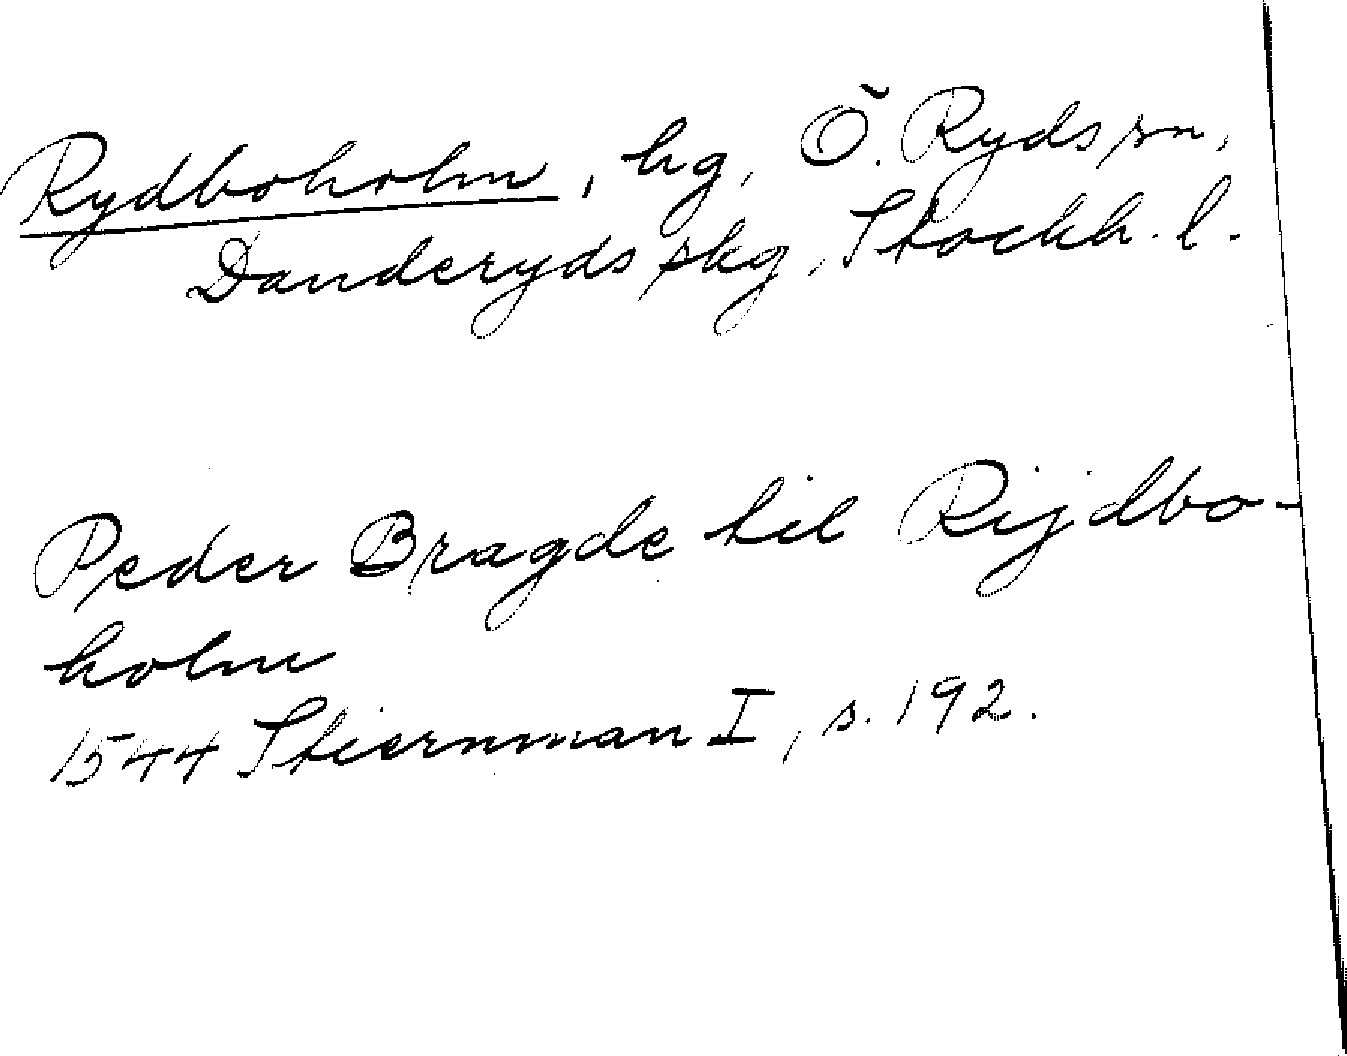 Rydboholm, hg, Ö. Ryds sn,
Danderyds skg, Stockh. l.
Peder Bragde til Rijdbo-
holm
1544 Stiernman I, s. 192.